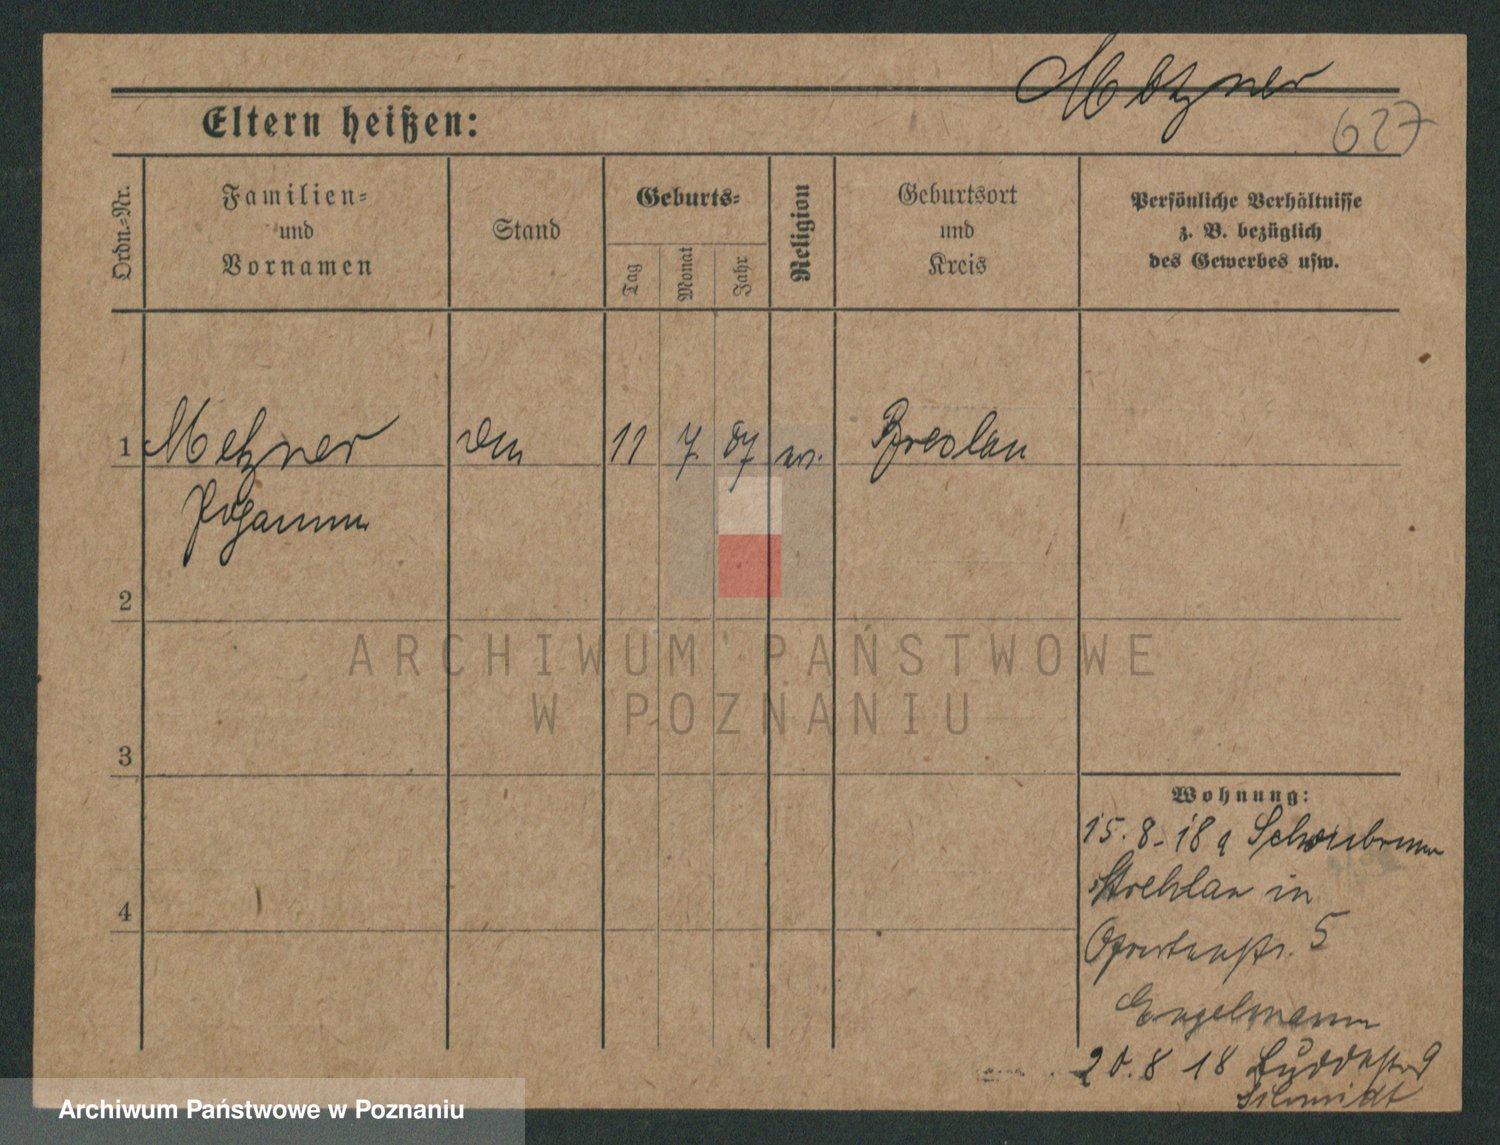 Metzner
627
Eltern heißen:
Ordn.-Nr.
Familien-
und
Vornamen
Stand
Geburts-
Tag
Monat
Jahr
Religion
Geburtsort
und
Kreis
Persönliche Verhältnisse
z. B. bezüglich
des Gewerbes usw.
1 Metzner 11 7. 87 Breslau
Johanna
2
ARCHIWUM PAŃSTWOWE
W POZNANIU
3
Wohnung:
15. 8. 18 a Schönbrunn
Strehlen in
5
4
Engelmann
20. 8 18 9
Schmidt
Archiwum Państwowe w Poznaniu